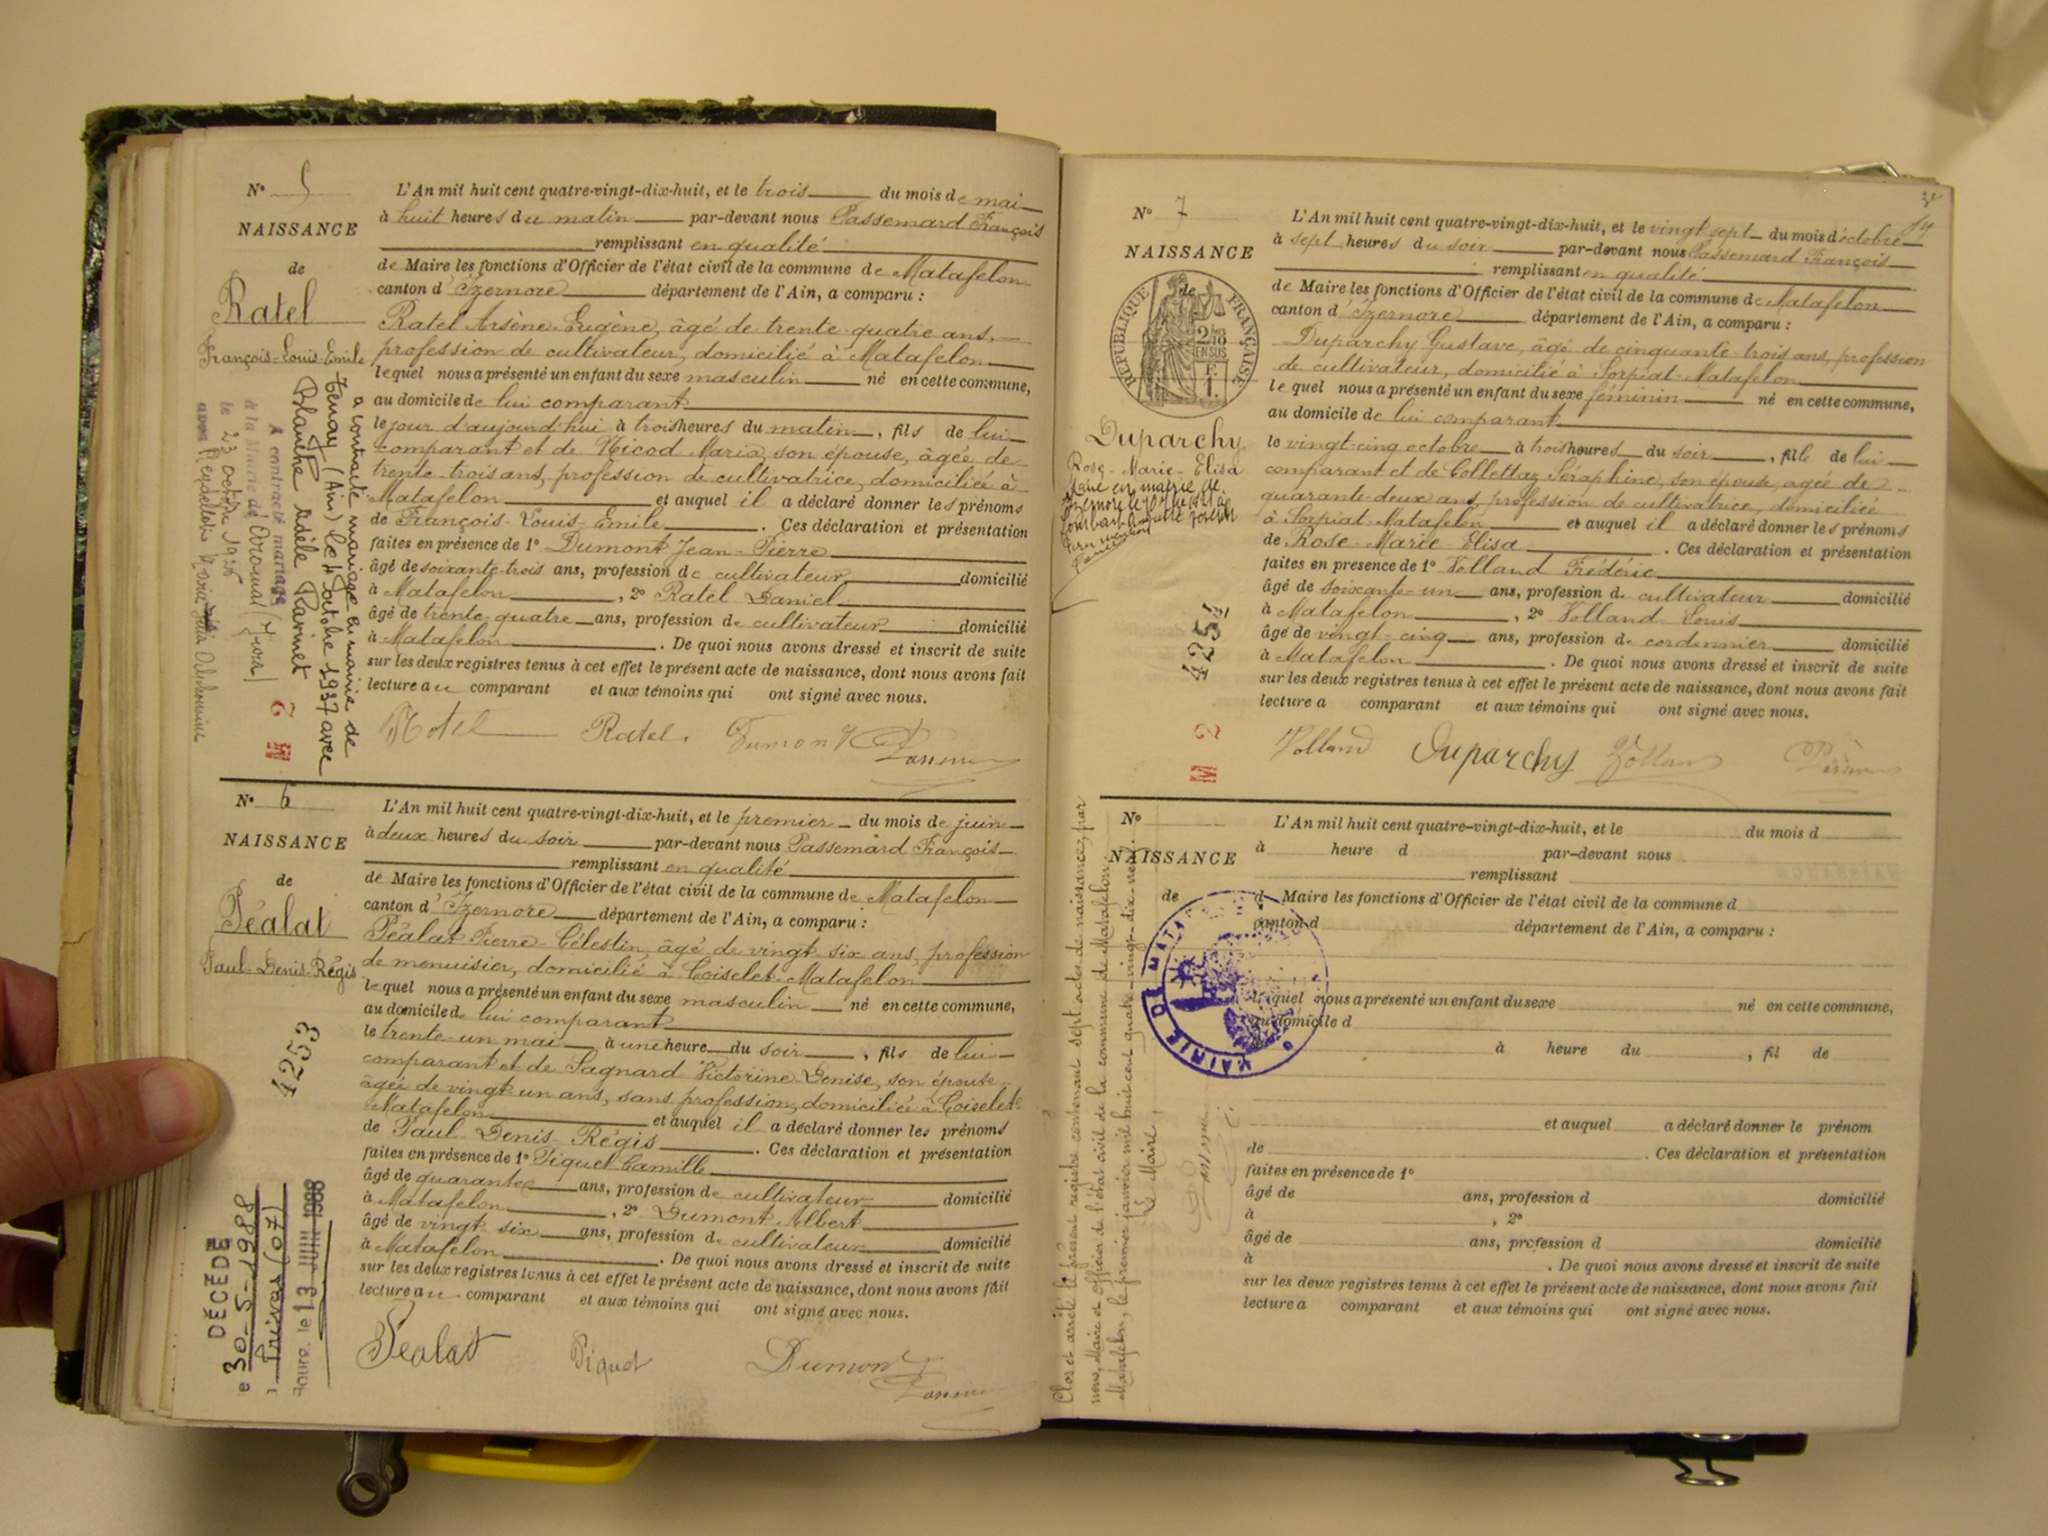 N° 5
NAISSANCE
de
Ratel
François-Louis-Emile
L'An mil huit cent quatre-vingt-dix-huit, et le trois du mois de mai
à huit heures du matin par-devant nous Passemard François
remplissant en qualité
de Maire les fonctions d'Officier de l'état civil de la commune de Matafelon
canton d'Izernore département de l'Ain, a comparu :
Ratel Arsène Eugène, âgé de trente quatre ans,
profession de cultivateur, domicilié à Matafelon
lequel nous a présenté un enfant du sexe masculin né en cette commune,
au domicile de lui comparant
le jour d'aujourd'hui à trois heures du matin, fils de lui
comparant et de Nicod Maria, son épouse, âgée de
trente-trois ans, profession de cultivatrice, domiciliée à
Matafelon et auquel il a déclaré donner les prénoms
de François-Louis-Emile. Ces déclaration et présentation
faites en présence de 1° Dumont Jean-Pierre
âgé de soixante-trois ans, profession de cultivateur domicilié
à Matafelon, 2° Ratel Daniel
âgé de trente quatre ans, profession de cultivateur domicilié
à Matafelon. De quoi nous avons dressé et inscrit de suite
sur les deux registres tenus à cet effet le présent acte de naissance, dont nous avons fait
lecture au comparant et aux témoins qui ont signé avec nous.
Ratel Dumont
a contracté mariage en mairie de
Tenay (Ain) le octobre 1937 avec
Blanche Adèle Ravinet
A contracté mariage
à la Mairie de (Jura)
le 23 octobre 1926
avec
M 2
N° 6
NAISSANCE
de
Péalat
Paul-Denis-Régis
4253
DÉCÉDÉ
30-5-1988
(07)
le 13 JUIN 1988
L'An mil huit cent quatre-vingt-dix-huit, et le premier du mois de juin
à deux heures du soir par-devant nous Passemard François
remplissant en qualité
de Maire les fonctions d'Officier de l'état civil de la commune de Matafelon
canton d'Izernore département de l'Ain, a comparu :
Péalat Pierre-Célestin, âgé de vingt six ans, profession
de menuisier, domicilié à Coiselet-Matafelon
lequel nous a présenté un enfant du sexe masculin né en cette commune,
au domicile de lui comparant
le trente-un mai à une heure du soir, fils de lui
comparant et de Sagnard Victorine Denise, son épouse
âgée de vingt un ans, sans profession, domiciliée à Coiselet
Matafelon et auquel il a déclaré donner les prénoms
de Paul-Denis-Régis. Ces déclaration et présentation
faites en présence de 1° Piquet Camille
âgé de quarante ans, profession de cultivateur domicilié
à Matafelon, 2° Dumont Albert
âgé de vingt six ans, profession de cultivateur domicilié
à Matafelon. De quoi nous avons dressé et inscrit de suite
sur les deux registres tenus à cet effet le présent acte de naissance, dont nous avons fait
lecture au comparant et aux témoins qui ont signé avec nous.
Péalat Piquet Dumont
N° 7
NAISSANCE
de
RÉPUBLIQUE FRANÇAISE
Duparchy
Rose-Marie-Elisa
4254
M 2
L'An mil huit cent quatre-vingt-dix-huit, et le vingt sept du mois d'octobre
à sept heures du soir par-devant nous Passemard François
remplissant en qualité
de Maire les fonctions d'Officier de l'état civil de la commune de Matafelon
canton d'Izernore département de l'Ain, a comparu :
Duparchy Gustave, âgé de cinquante-trois ans, profession
de cultivateur, domicilié à Sorpiat-Matafelon
lequel nous a présenté un enfant du sexe féminin né en cette commune,
au domicile de lui comparant
le vingt-cinq octobre à trois heures du soir, fille de lui
comparant et de Collettaz Séraphine, son épouse, agée de
quarante-deux ans, profession de cultivatrice, domiciliée
à Sorpiat-Matafelon et auquel il a déclaré donner les prénoms
de Rose-Marie-Elisa. Ces déclaration et présentation
faites en présence de 1° Volland Frédéric
âgé de soixante-un ans, profession de cultivateur domicilié
à Matafelon, 2° Volland Louis
âgé de vingt-cinq ans, profession de cordonnier domicilié
à Matafelon. De quoi nous avons dressé et inscrit de suite
sur les deux registres tenus à cet effet le présent acte de naissance, dont nous avons fait
lecture a comparant et aux témoins qui ont signé avec nous.
Volland Duparchy Volland
N°
NAISSANCE
de
MAIRIE DE MATA
L'An mil huit cent quatre-vingt-dix-huit, et le du mois d
à heure d par-devant nous
remplissant
d Maire les fonctions d'Officier de l'état civil de la commune d
canton d département de l'Ain, a comparu :
lequel nous a présenté un enfant du sexe né en cette commune,
au domicile d
à heure du , fil de
et auquel a déclaré donner le prénom
de . Ces déclaration et présentation
faites en présence de 1°
âgé de ans, profession d domicilié
à , 2°
âgé de ans, profession d domicilié
à . De quoi nous avons dressé et inscrit de suite
sur les deux registres tenus à cet effet le présent acte de naissance, dont nous avons fait
lecture a comparant et aux témoins qui ont signé avec nous.
Clos et arrêté le présent registre contenant sept actes de naissance, par
nous, Maire et Officier de l'état civil de la commune de Matafelon.
Matafelon, le premier janvier mil huit cent quatre-vingt-dix-neuf.
Le Maire,